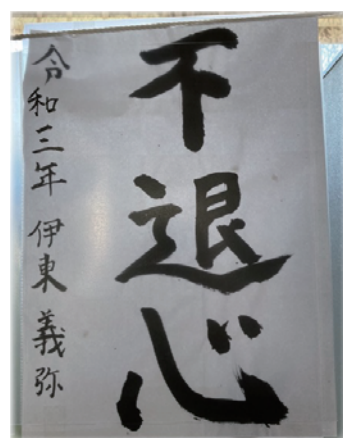 不退心
令和三年 伊東 義弥